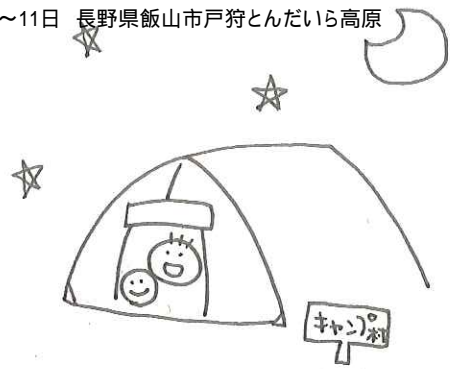 ～11日 長野県飯山市戸狩とんだいら高原
キャンプ村